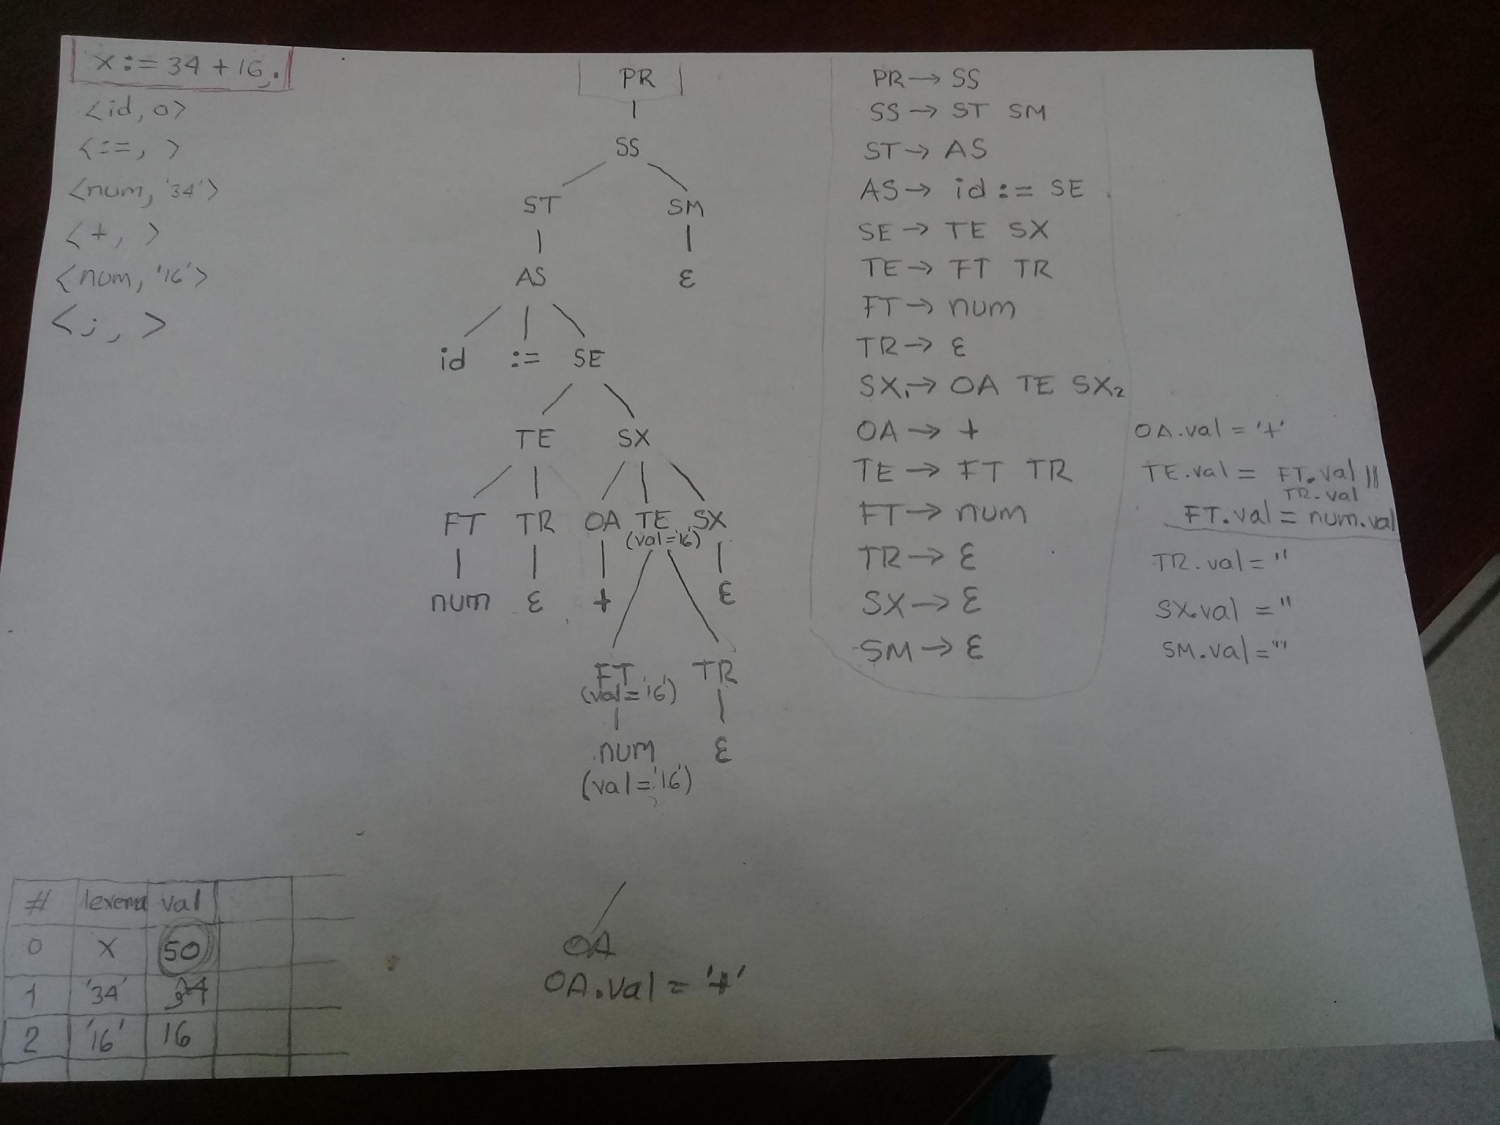 x := 34 + 16;
<id, 0>
<:=, >
<num, '34'>
<+, >
<num, '16'>
<;, >
PR
SS
ST SM
AS ε
id := SE
TE SX
FT TR OA TE SX
(val='16')
num ε + ε
FT TR
(val='16')
num ε
(val='16')
OA
OA.val = '+'
PR → SS
SS → ST SM
ST → AS
AS → id := SE
SE → TE SX
TE → FT TR
FT → num
TR → ε
SX₁ → OA TE SX₂
OA → + OA.val = '+'
TE → FT TR TE.val = FT.val ||
TR.val
FT → num FT.val = num.val
TR → ε TR.val = ''
SX → ε SX.val = ''
SM → ε SM.val = ""
# lexema val
0 X 50
1 '34' 34
2 '16' 16